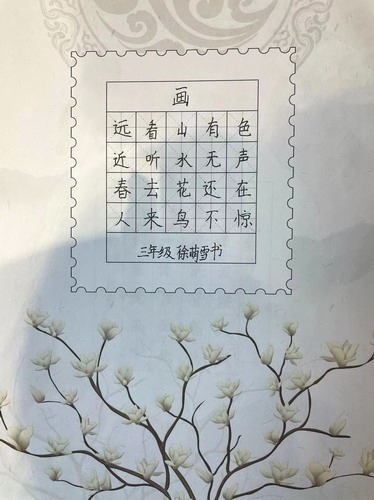 画
远看山有色
近听水无声
春去花还在
人来鸟不惊
三年级 徐萌雪书